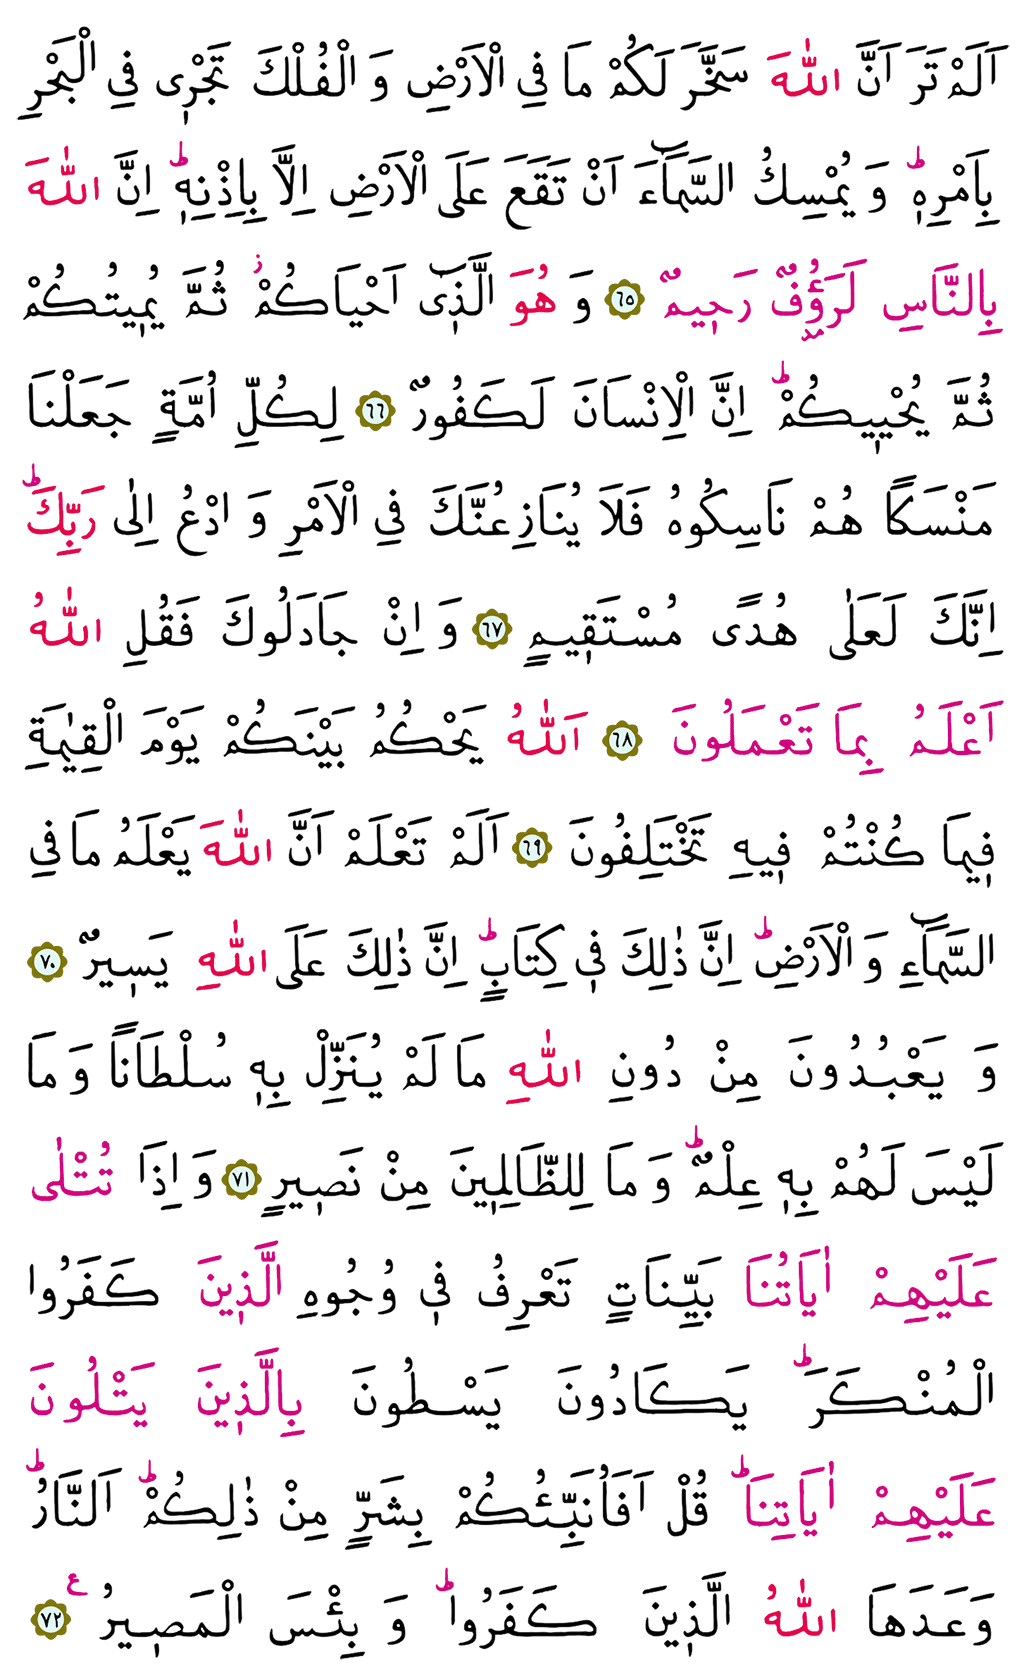 اَلَمْ تَرَ اَنَّ اللّٰهَ سَخَّرَ لَكُمْ مَا فِي الْاَرْضِ وَ الْفُلْكَ تَجْر۪ي فِي الْبَحْرِ
بِاَمْرِه۪ۜ وَ يُمْسِكُ السَّمَٓاءَ اَنْ تَقَعَ عَلَى الْاَرْضِ اِلَّا بِاِذْنِه۪ۜ اِنَّ اللّٰهَ
بِالنَّاسِ لَرَؤُ۫فٌ رَح۪يمٌ ﴿٦٥﴾ وَ هُوَ الَّذ۪ٓي اَحْيَاكُمْۘ ثُمَّ يُم۪يتُكُمْ
ثُمَّ يُحْي۪يكُمْۜ اِنَّ الْاِنْسَانَ لَكَفُورٌ ﴿٦٦﴾ لِكُلِّ اُمَّةٍ جَعَلْنَا
مَنْسَكًا هُمْ نَاسِكُوهُ فَلَا يُنَازِعُنَّكَ فِي الْاَمْرِ وَ ادْعُ اِلٰى رَبِّكَۜ
اِنَّكَ لَعَلٰى هُدًى مُسْتَق۪يمٍ ﴿٦٧﴾ وَ اِنْ جَادَلُوكَ فَقُلِ اللّٰهُ
اَعْلَمُ بِمَا تَعْمَلُونَ ﴿٦٨﴾ اَللّٰهُ يَحْكُمُ بَيْنَكُمْ يَوْمَ الْقِيٰمَةِ
ف۪يمَا كُنْتُمْ ف۪يهِ تَخْتَلِفُونَ ﴿٦٩﴾ اَلَمْ تَعْلَمْ اَنَّ اللّٰهَ يَعْلَمُ مَا فِي
السَّمَٓاءِ وَ الْاَرْضِۜ اِنَّ ذٰلِكَ ف۪ي كِتَابٍۜ اِنَّ ذٰلِكَ عَلَى اللّٰهِ يَس۪يرٌ ﴿٧٠﴾
وَ يَعْبُدُونَ مِنْ دُونِ اللّٰهِ مَا لَمْ يُنَزِّلْ بِه۪ سُلْطَانًا وَ مَا
لَيْسَ لَهُمْ بِه۪ عِلْمٌۜ وَ مَا لِلظَّالِم۪ينَ مِنْ نَص۪يرٍ ﴿٧١﴾ وَ اِذَا تُتْلٰى
عَلَيْهِمْ اٰيَاتُنَا بَيِّنَاتٍ تَعْرِفُ ف۪ي وُجُوهِ الَّذ۪ينَ كَفَرُوا
الْمُنْكَرَۜ يَكَادُونَ يَسْطُونَ بِالَّذ۪ينَ يَتْلُونَ
عَلَيْهِمْ اٰيَاتِنَاۜ قُلْ اَفَاُنَبِّئُكُمْ بِشَرٍّ مِنْ ذٰلِكُمْۜ اَلنَّارُۜ
وَعَدَهَا اللّٰهُ الَّذ۪ينَ كَفَرُواۜ وَ بِئْسَ الْمَص۪يرُ ع ﴿٧٢﴾